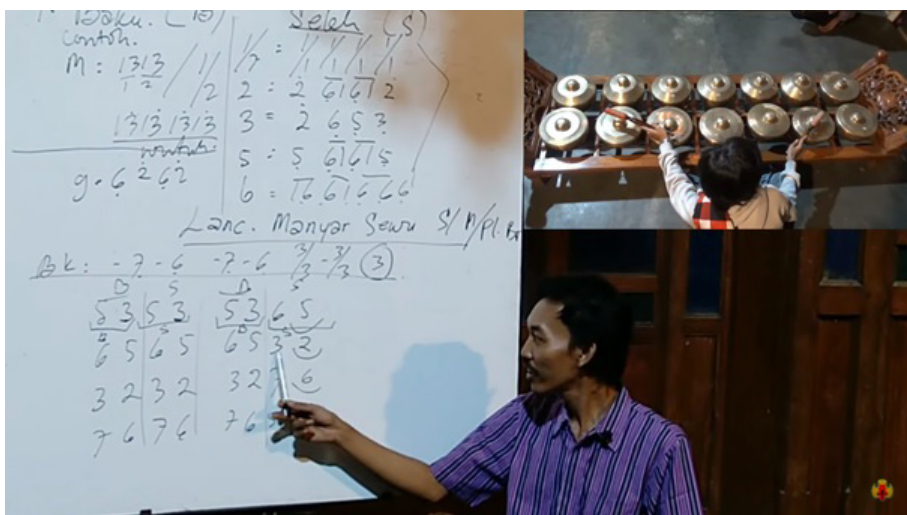 Baku. (B)
Contoh.
M : 1313 / 1/2
1 2
1313 1313
Contoh:
g. 6 2 6 2
Seleh (S)
1/7 = 1/1/1/1
2 = 2 6161 2
3 = 2 6 5 3
5 = 5 6161 5
6 = 16 61 6 66
Lanc. Manyar Sewu S/ M/Pl. Br
Bk : - 7 - 6 - 7 - 6 3/3 - 3/3 (3)
B S B S
5 3 5 3 5 3 6 5
6 5 6 5 6 5 3 2
3 2 3 2 3 2 6
7 6 7 6 7 6